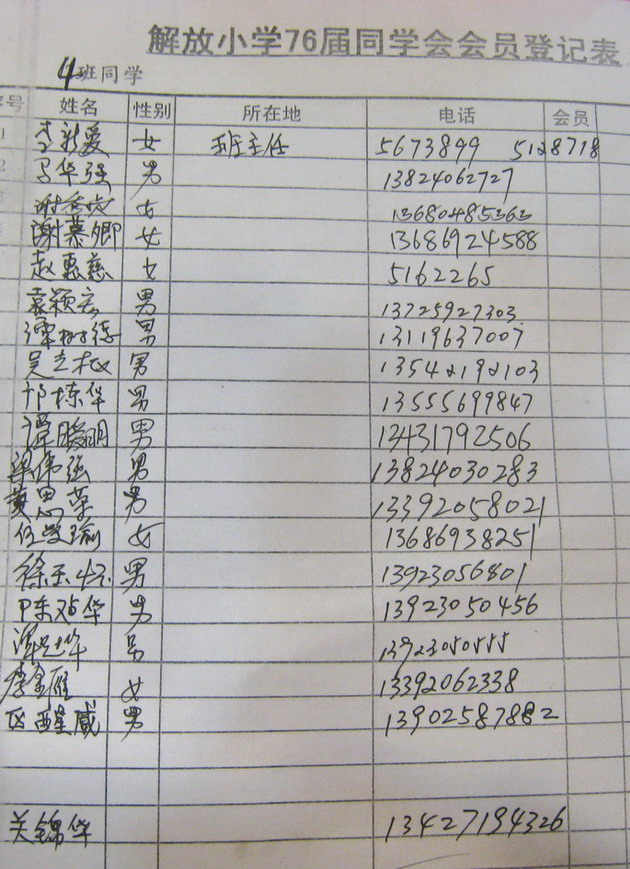 解放小学76届同学会会员登记表
4班同学
序号 姓名 性别 所在地 电话 会员
1 李新爱 女 班主任 5673899 5128718
2 马华强 男 13824062727
3 女 13680485363
谢慕卿 女 13686924588
赵惠慈 女 5162265
袁颖宏 男 13725927303
谭树德 男 13119637007
吴立权 男 13542192103
邝栋华 男 13555699847
谭聪明 男 13431792506
梁伟强 男 13824030283
黄思荣 男 13392058021
任 瑜 女 13686938251
徐玉 男 13923056801
陈冠华 男 13923050456
谭 华 男 13923050555
李金雁 女 13392062338
区醒威 男 13902587882
关锦华 13427194326